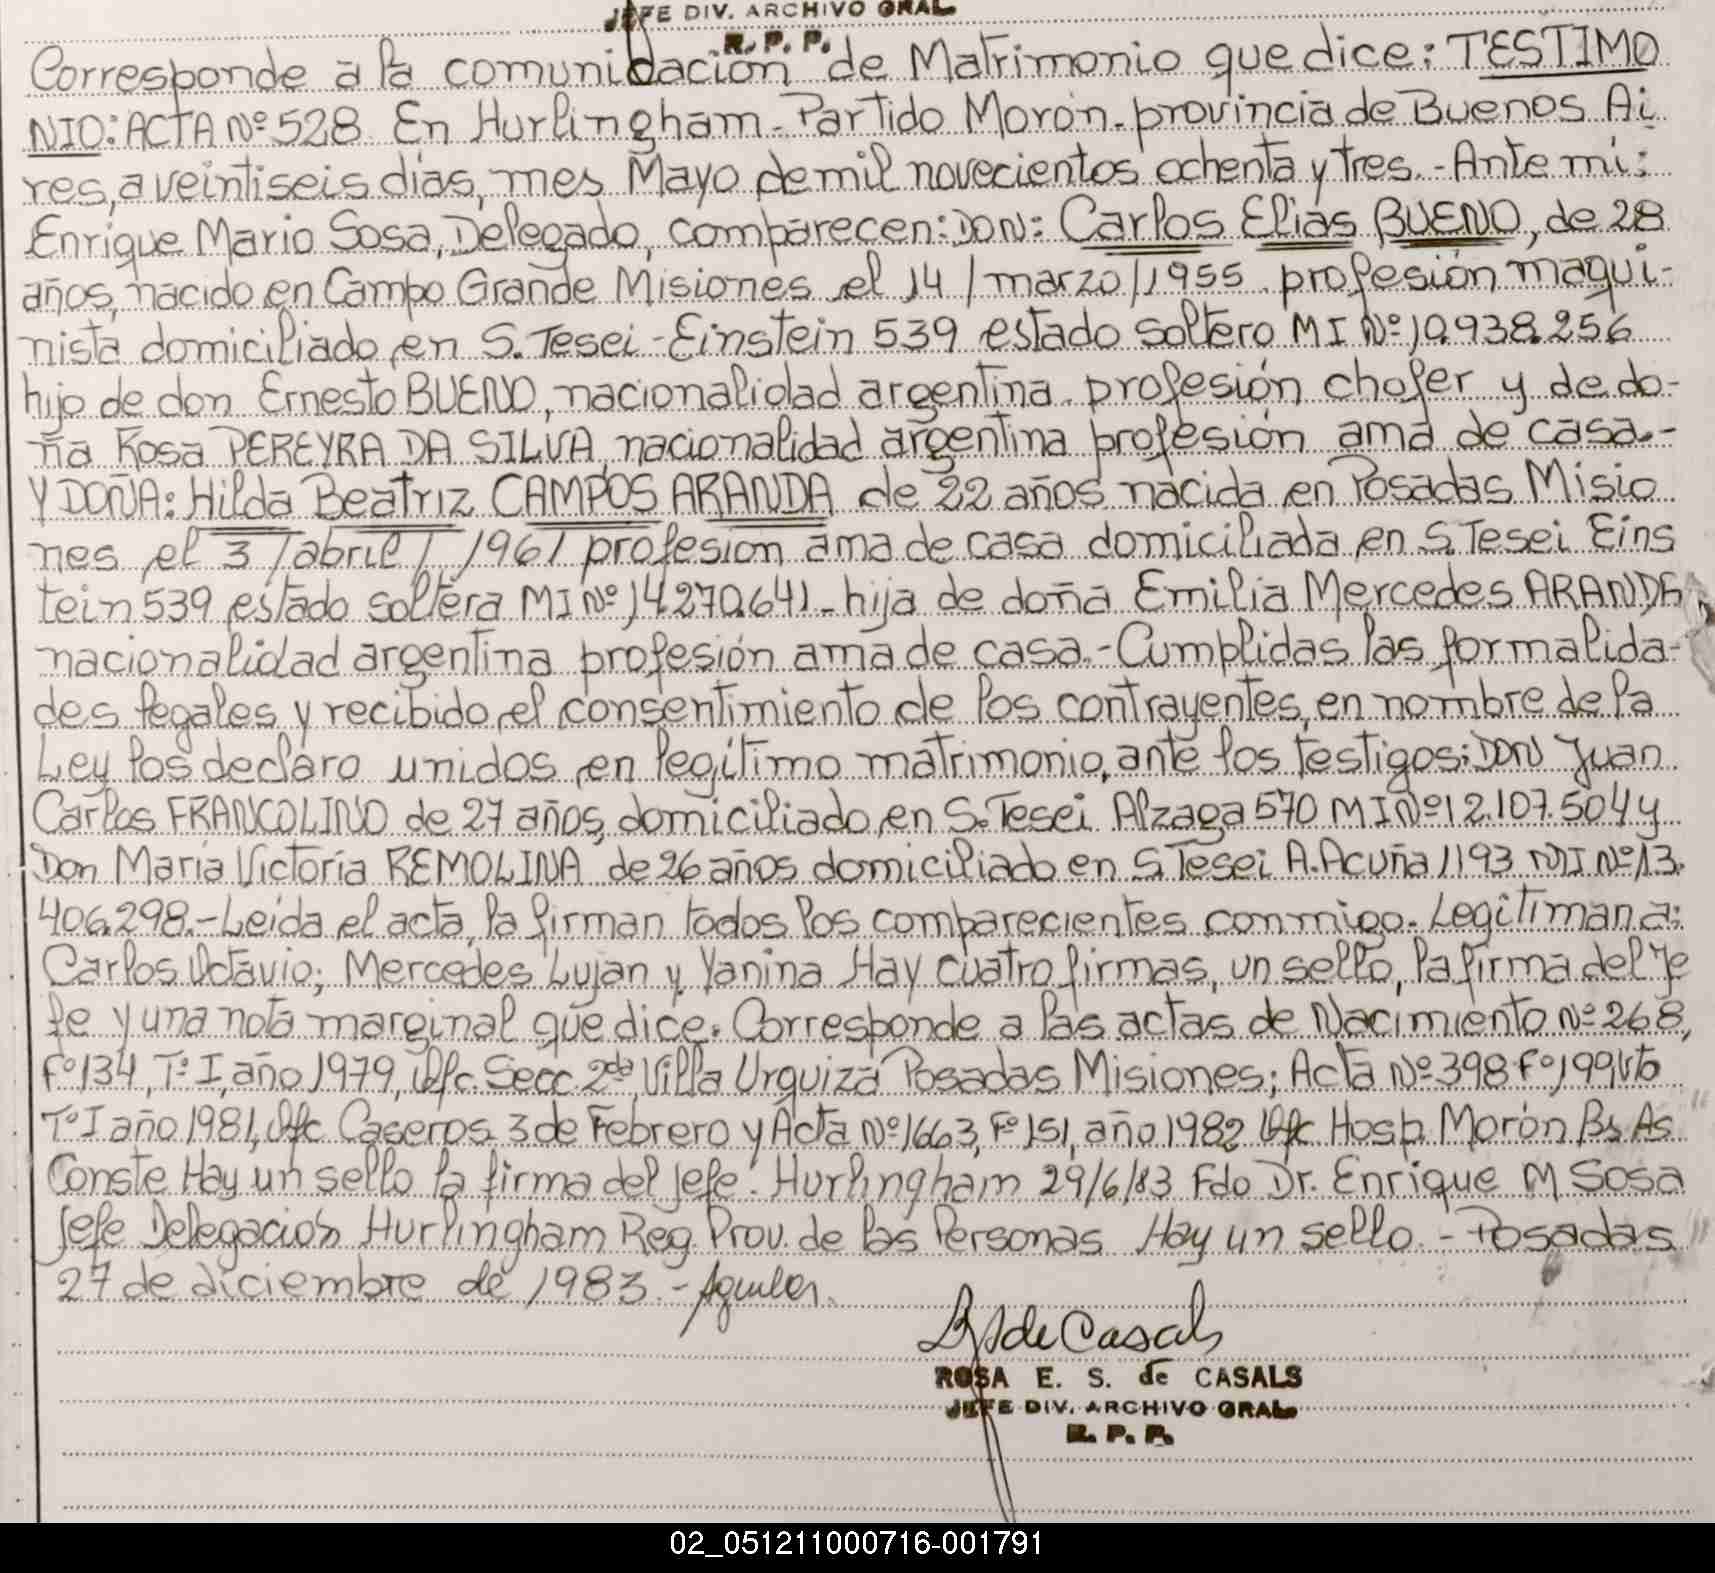 JEFE DIV. ARCHIVO GRAL.
R. P. P.
Corresponde a la comunicación de Matrimonio que dice: TESTIMO
NIO: ACTA Nº 528 En Hurlingham - Partido Morón - provincia de Buenos Ai
res, a veintiseis días, mes Mayo de mil novecientos ochenta y tres. - Ante mí:
Enrique Mario Sosa, Delegado, comparecen: DON: Carlos Elias BUENO, de 28
años, nacido en Campo Grande Misiones el 14/marzo/1955 profesión maqui-
nista domiciliado en S. Tesei - Einstein 539 estado soltero MI Nº 10.938.256
hijo de don Ernesto BUENO, nacionalidad argentina profesión chofer y de do-
ña Rosa PEREYRA DA SILVA, nacionalidad argentina profesión ama de casa.-
Y DOÑA: Hilda Beatriz CAMPOS ARANDA de 22 años nacida en Posadas Misio
nes el 3/abril/1961 profesion ama de casa domiciliada en S. Tesei Eins
tein 539 estado soltera MI Nº 14.270.641 - hija de doña Emilia Mercedes ARANDA
nacionalidad argentina profesión ama de casa.- Cumplidas las formalida-
des legales y recibido el consentimiento de los contrayentes, en nombre de la
Ley los declaro unidos en legítimo matrimonio, ante los testigos: DON Juan
Carlos FRANCOLINO de 27 años, domiciliado en S. Tesei Alzaga 570 MI Nº 12.107.504 y
Don María Victoria REMOLINA de 26 años domiciliado en S Tesei A. Acuña 1193 MI Nº 13.
406.298.- Leída el acta, la firman todos los comparecientes conmigo. Legitiman a:
Carlos Octavio; Mercedes Lujan y Yanina Hay cuatro firmas, un sello, la firma del Je
fe y una nota marginal que dice. Corresponde a las actas de Nacimiento Nº 268,
Fº 134, Tº I, año 1979, Ofc. Secc. 2da, Villa Urquiza Posadas Misiones; Acta Nº 398 Fº 199 vto
Tº I año 1981, Ofc Caseros 3 de Febrero y Acta Nº 1663, Fº 151, año 1982 Ofc Hosp. Morón Bs As
Conste Hay un sello la firma del jefe. Hurlingham 29/6/83 Fdo Dr. Enrique M Sosa
Jefe Delegación Hurlingham Reg. Prov. de las Personas Hay un sello. - Posadas
27 de diciembre de 1983. - Aguiler
de Casals
ROSA E. S. de CASALS
JEFE DIV. ARCHIVO GRAL.
R. P. P.
02_051211000716-001791